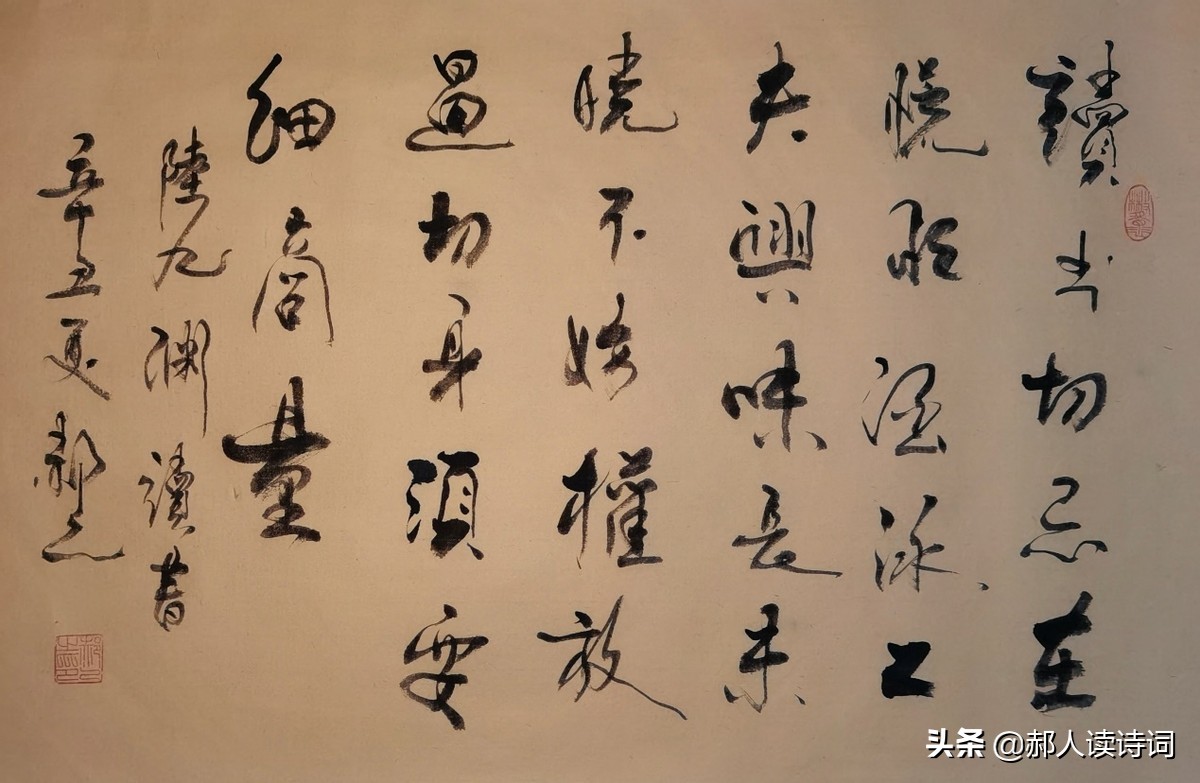 讀书切忌在
慌忙涵泳工
夫興味長未
曉不妨權放
過切身須要
細商量
陸九淵讀書
辛丑夏郝
头条 @郝人读诗词